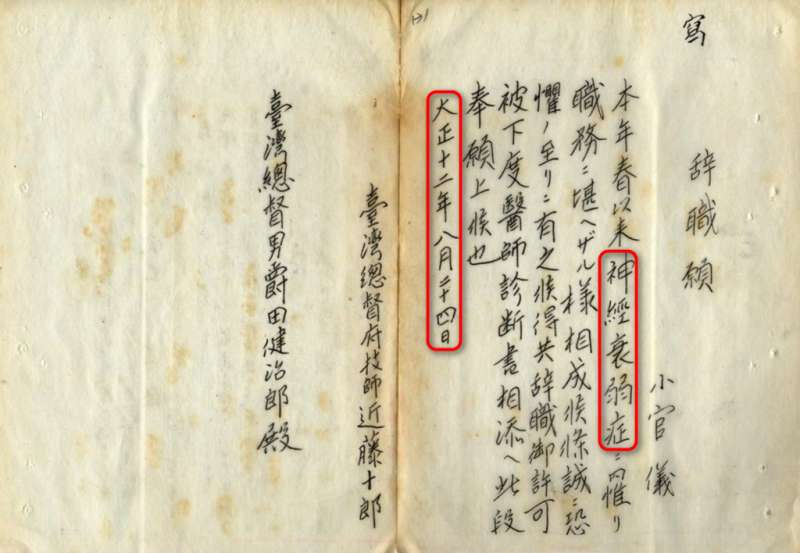 寫
辞職願
小官儀
本年春以来神經衰弱症ニ罹リ
職務ニ堪ヘザル様相成候條誠ニ恐
懼ノ至リニ有之候得共辞職御許可
被下度醫師診断書相添ヘ此段
奉願上候也
大正十二年八月二十四日
臺灣總督府技師近藤十郎
臺灣總督男爵田健治郎殿